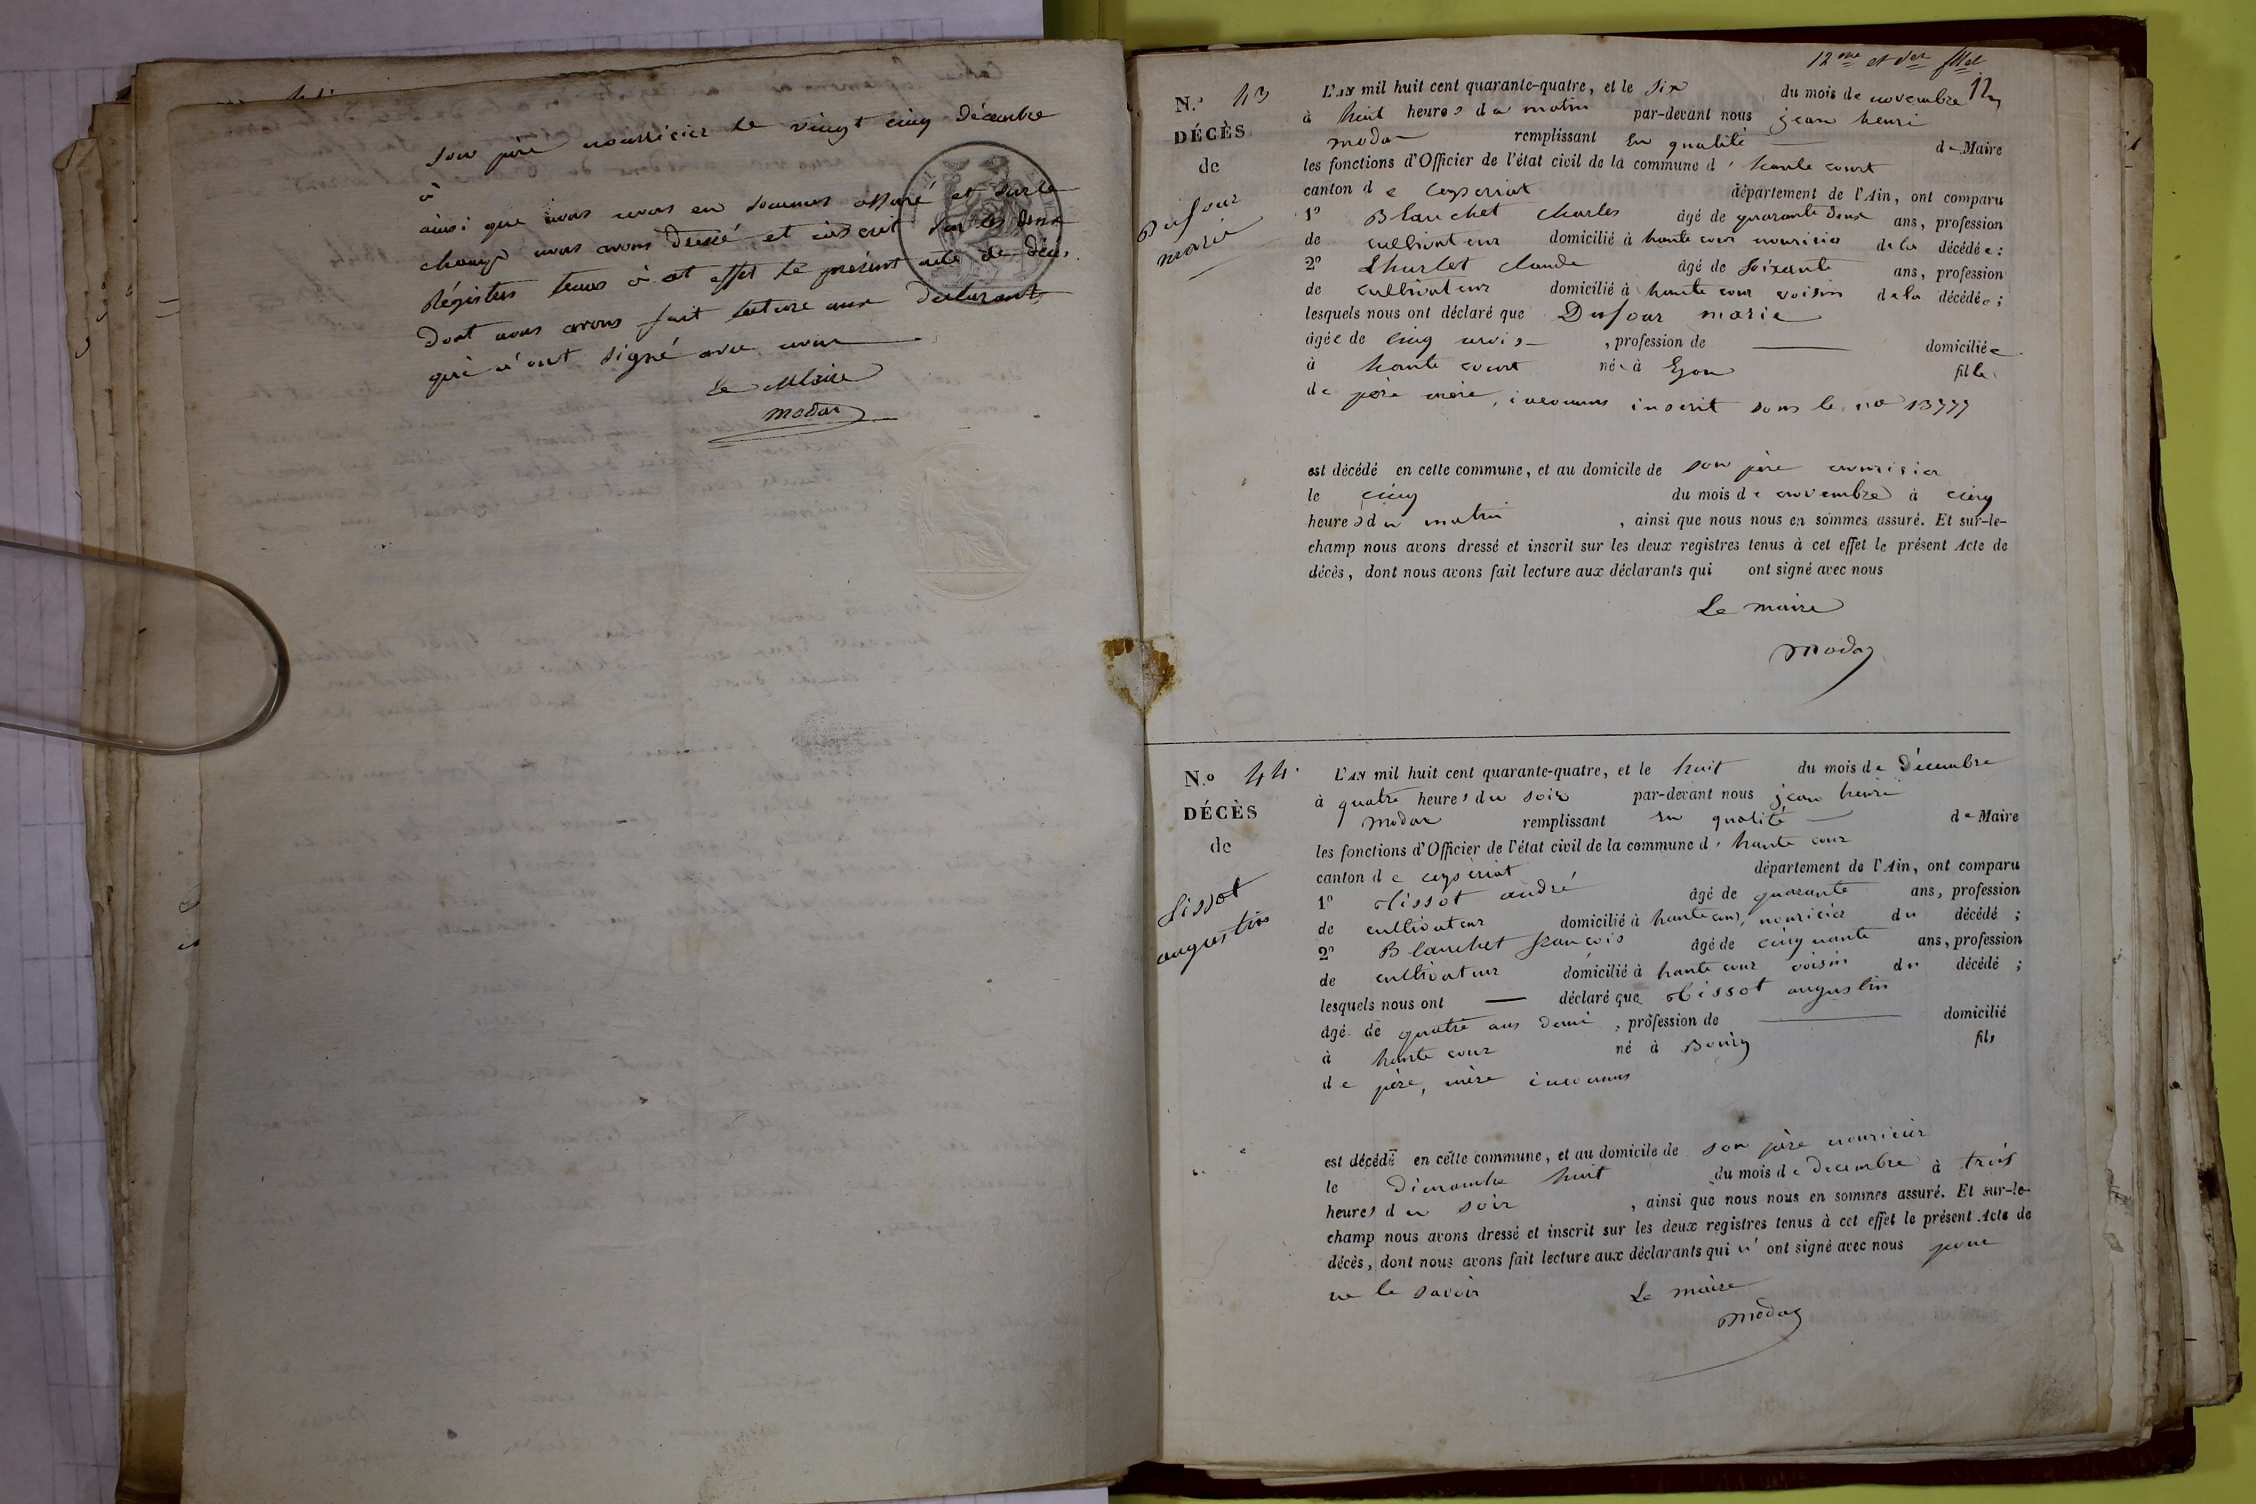 son père nourricier le vingt cinq décembre
à
ainsi que nous nous en sommes assuré et sur le
champ nous avons dressé et inscrit sur les deux
Régistres tenus à cet effet le présent acte de décès,
dont nous avons fait lecture aux déclarants
qui n'ont signé avec nous
Le Maire
modas
12me et der fllet
12
N.º 43
DÉCÈS
de
Dufour
marie
L'AN mil huit cent quarante-quatre, et le Six du mois de novembre
à huit heures du matin par-devant nous jean henri
modas remplissant En qualité de Maire
les fonctions d'Officier de l'état civil de la commune d' haute court
canton de Ceyseriat département de l'Ain, ont comparu
1º Blanchet Charles âgé de quarante deux ans, profession
de cultivateur domicilié à haute cour nouricier de la décédée ;
2º Thurlet claude âgé de Soixante ans, profession
de cultivateur domicilié à haute cour voisin de la décédée ;
lesquels nous ont déclaré que Dufour marie
âgée de cinq mois , profession de domiciliée
à haute court née à Lyon fille
de père mère, inconnus inscrit sous le no 13777
est décédé en cette commune, et au domicile de son père nouricier
le cinq du mois de novembre à cinq
heures du matin , ainsi que nous nous en sommes assuré. Et sur-le-
champ nous avons dressé et inscrit sur les deux registres tenus à cet effet le présent Acte de
décès, dont nous avons fait lecture aux déclarants qui ont signé avec nous
Le maire
modas
N.º 44
DÉCÈS
de
Tissot
augustin
L'AN mil huit cent quarante-quatre, et le huit du mois de Décembre
à quatre heures du soir par-devant nous jean henri
modas remplissant En qualité de Maire
les fonctions d'Officier de l'état civil de la commune d' haute cour
canton de ceyseriat département de l'Ain, ont comparu
1º Tissot andré âgé de quarante ans, profession
de cultivateur domicilié à haute cour, nouricier du décédé ;
2º Blanchet francois âgé de cinquante ans, profession
de cultivateur domicilié à haute cour voisin du décédé ;
lesquels nous ont déclaré que Tissot augustin
âgé de quatre ans demi , profession de domicilié
à haute cour né à Bourg fils
de père, mère inconnus
est décédé en cette commune, et au domicile de son père nouricier
le dimanche huit du mois de decembre à trois
heures du soir , ainsi que nous nous en sommes assuré. Et sur-le-
champ nous avons dressé et inscrit sur les deux registres tenus à cet effet le présent Acte de
décès, dont nous avons fait lecture aux déclarants qui n' ont signé avec nous pour
ne le savoir
Le maire
modas